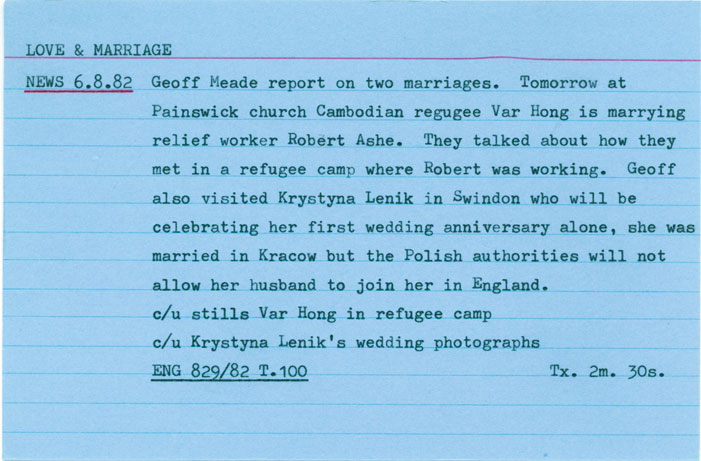 LOVE & MARRIAGE
NEWS 6.8.82 Geoff Meade report on two marriages. Tomorrow at
Painswick church Cambodian regugee Var Hong is marrying
relief worker Robert Ashe. They talked about how they
met in a refugee camp where Robert was working. Geoff
also visited Krystyna Lenik in Swindon who will be
celebrating her first wedding anniversary alone, she was
married in Kracow but the Polish authorities will not
allow her husband to join her in England.
c/u stills Var Hong in refugee camp
c/u Krystyna Lenik's wedding photographs
ENG 829/82 T.100 Tx. 2m. 30s.